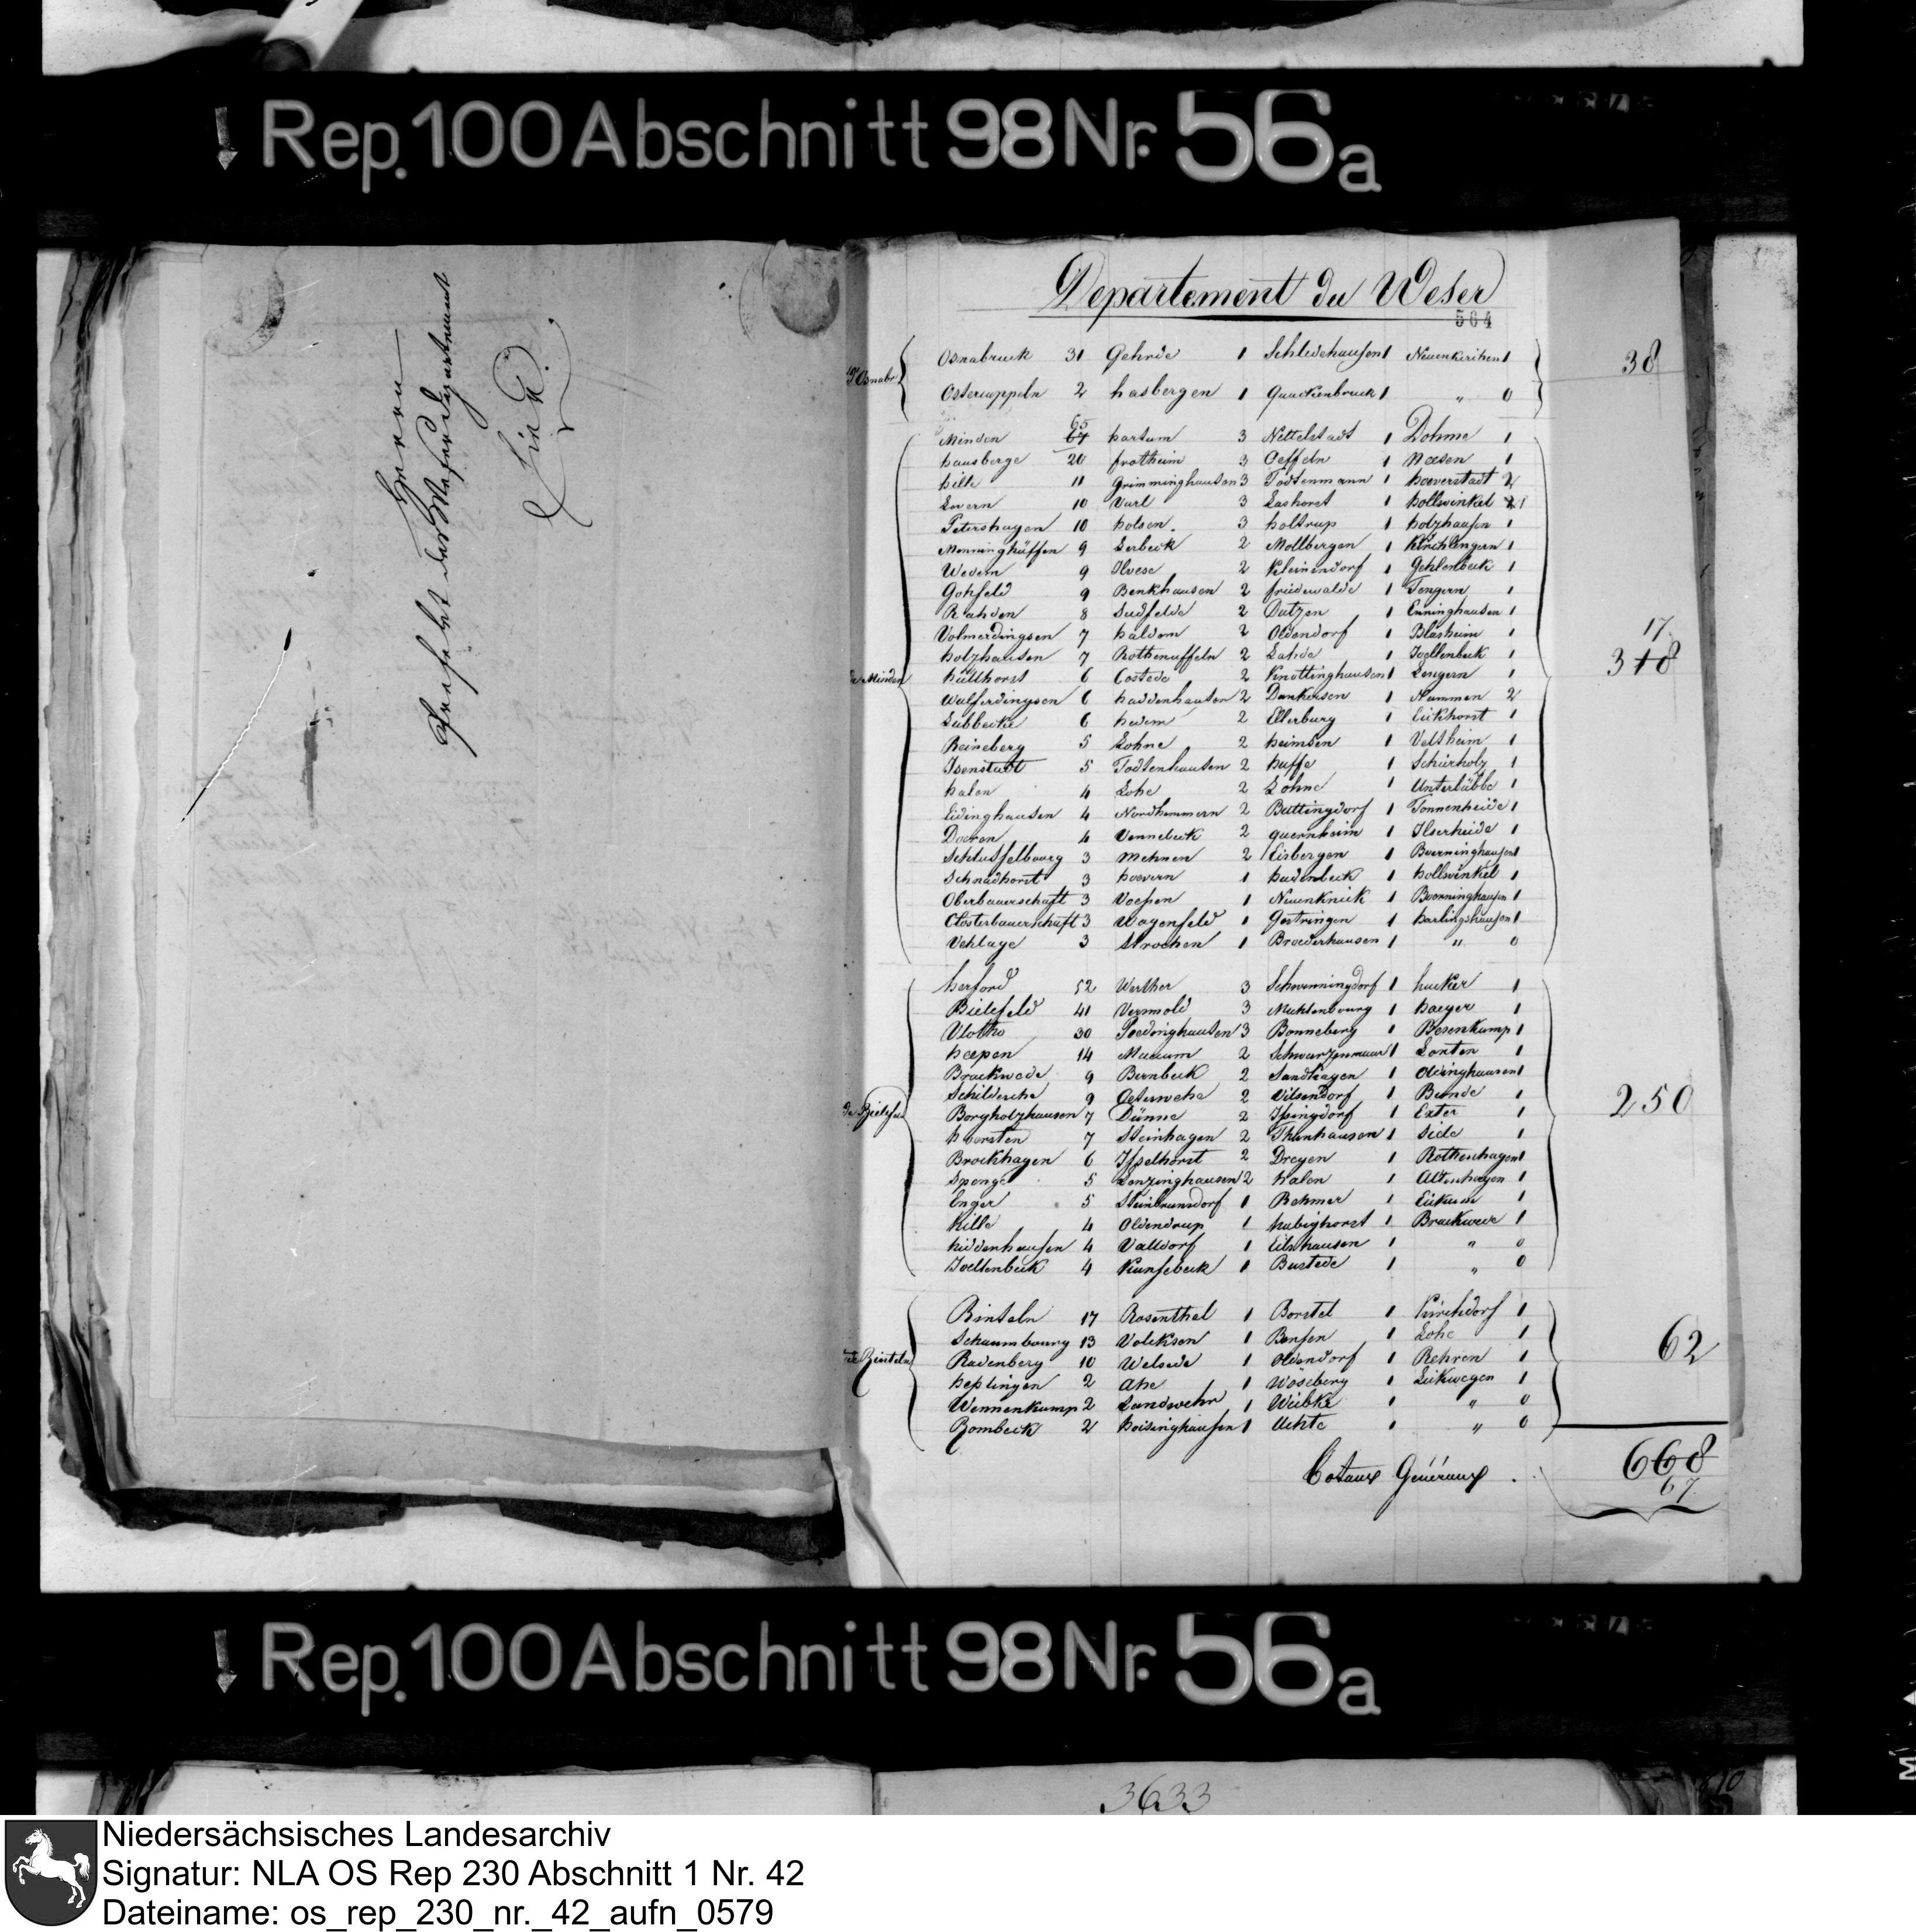 Rep. 100 Abschnitt 98 Nr. 56a
Herrn
Praefect des Weserdepartement
Departement du Weser
564
Osnabruck 31 Gehrde 1 Schledehausen 1 Neuenkirchen 1
Ostercappeln 2 hasbergen 1 Quackenbruck 1 " 0
d'Osnabr.
38
Minden 65 67 hartum 3 Nettelstadt 1 Dohme 1
hausberge 20 frotheim 3 Oeffeln 1 Neesen 1
hille 11 Grimminghausen 3 Todtenmann 1 hoeverstadt 2
Levern 10 Varl 3 Lashorst 1 hollwinkel 1
Petershagen 10 holsen 3 holtrup 1 holzhausen 1
Menninghüffen 9 Lerbeck 2 Mollbergen 1 Kirchlengern 1
Wedem 9 Ilvese 2 Kleinendorf 1 Gehlenbeck 1
Gohfeld 9 Benkhausen 2 friedewalde 1 Tengern 1
Rahden 8 Sudfelde 2 Dutzen 1 Enninghausen 1
Volmerdingsen 7 haldem 2 Oldendorf 1 Blasheim 1
holzhausen 7 Rothenuffeln 2 Lahde 1 Joellenbeck 1
hüllhorst 6 Costede 2 Knottinghausen 1 Lengern 1
Wulferdingsen 6 haddenhausen 2 Dankersen 1 Nammen 2
Lubbecke 6 hedem 2 Ellerburg 1 Eickhorst 1
Reineberg 5 Lohne 2 heimsen 1 Veltheim 1
Isenstadt 5 Todtenhausen 2 huffe 1 Schierholz 1
halen 4 Lohe 2 Lohne 1 Unterlübbe 1
Eidinghausen 4 Nordhemmern 2 Buttingdorf 1 Tonnenheide 1
Doeren 4 Vennebeck 2 quernheim 1 Ilserheide 1
Schlusselbourg 3 Mehnen 2 Eisbergen 1 Boerninghausen 1
Schnadhorst 3 hoevern 1 hudenbeck 1 hollwinkel 1
Oberbauerschaft 3 Voessen 1 Neuenknick 1 Boerninghausen 1
Closterbauerschaft 3 Wagenfeld 1 Gestringen 1 harlingshausen 1
Vehlage 3 Stroehen 1 Broederhausen 1 " 0
de Minden
17
318
herford 52 Werther 3 Schwenningdorf 1 hucker 1
Bielefeld 41 Versmold 3 Muhlenbourg 1 haeger 1
Vlotho 30 Poedinghausen 3 Bonneberg 1 Besenkamp 1
heepen 14 Mucum 2 Schwarzenmaur 1 Loxten 1
Brackwede 9 Bernbeck 2 Sandhagen 1 Oldinghausen 1
Schildesche 9 Oesterwehe 2 Vilsendorf 1 Bunde 1
Borgholzhausen 7 Dünne 2 Issingdorf 1 Exter 1
hoersten 7 Steinhagen 2 Thenhausen 1 Siele 1
Brockhagen 6 Isselhorst 2 Dreyen 1 Rothenhagen 1
Spenge 5 Lenzinghausen 2 halen 1 Altenhagen 1
Enger 5 Steinbrunsdorf 1 Behmer 1 Eickum 1
hille 4 Oldendrup 1 habighorst 1 Brackwede 1
hiddenhausen 4 Valldorf 1 Eilshausen 1 " 0
Joellenbeck 4 Kunsebeck 1 Bustede 1 " 0
de Bielefeld
250
Rinteln 17 Rosenthal 1 Borstel 1 Kirchdorf 1
Schaumbourg 13 Volcksen 1 Bensen 1 Lohe 1
Rodenberg 10 Welsede 1 Oldendorf 1 Rehren 1
hesslingen 2 Ahe 1 Wöseberg 1 Liekwegen 1
Wennenkamp 2 Landwehr 1 Weibke 1 " 0
Fombeck 2 hoisinghausen 1 Uchte 1 " 0
de Rinteln
62
Totaux Généraux . 668
67
Rep. 100 Abschnitt 98 Nr. 56a
3633
Niedersächsisches Landesarchiv
Signatur: NLA OS Rep 230 Abschnitt 1 Nr. 42
Dateiname: os_rep_230_nr._42_aufn_0579